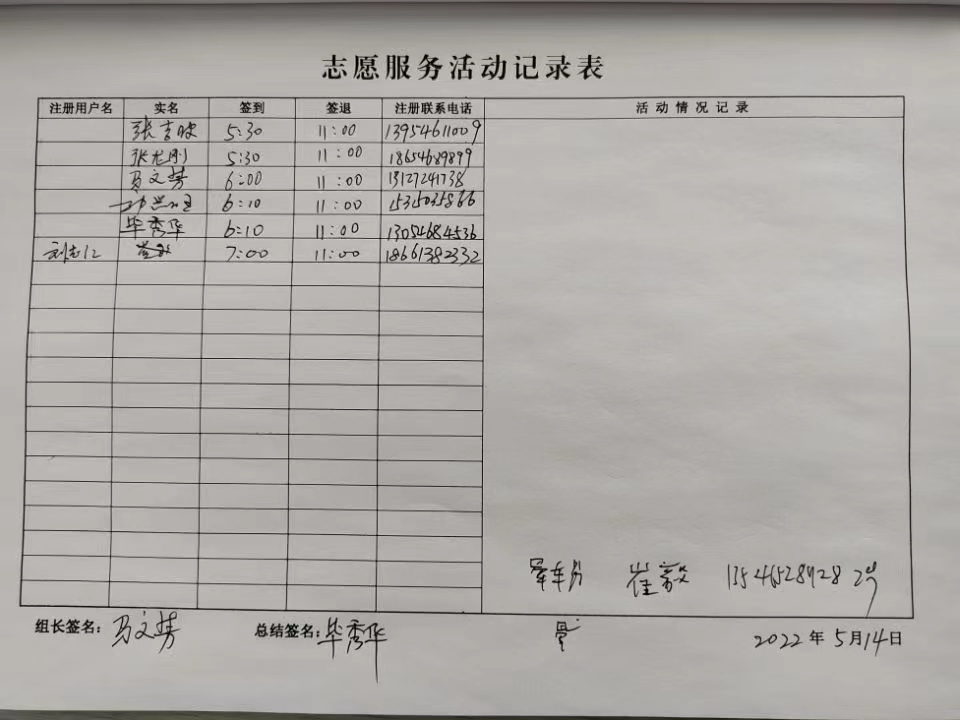 志愿服务活动记录表
注册用户名 实名 签到 签退 注册联系电话 活动情况记录
张吉波 5:30 11:00 13954611009
张龙刚 5:30 11:00 18654689899
马文芳 6:00 11:00 13127241738
6:10 11:00 15315035866
毕秀华 6:10 11:00 13054684536
刘志仁 7:00 11:00 18661382332
崔毅
组长签名: 马文芳 总结签名: 毕秀华
2022年5月14日